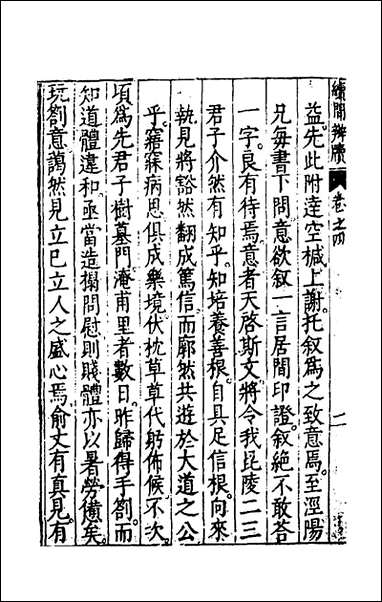 續問辨牘 卷之四 二
益先此附達空椷上謝托叙爲之致意焉至涇陽
兄每書下問意欲叙一言居間印證叙絕不敢荅
一字良有待焉意者天啓斯文將令我毘陵二三
君子介然有知乎知培養善根自具足信根向來
執見將豁然翻成篤信而廓然共遊於大道之公
乎寤寐病思俱成樂境伏枕草草代躬佈候不次
頃爲先君子樹墓門淹甫里者數日昨歸得手劄而
知道體違和亟當造榻問慰則賤體亦以暑勞備矣
玩劄意藹然見立已立人之盛心焉俞丈有真見有